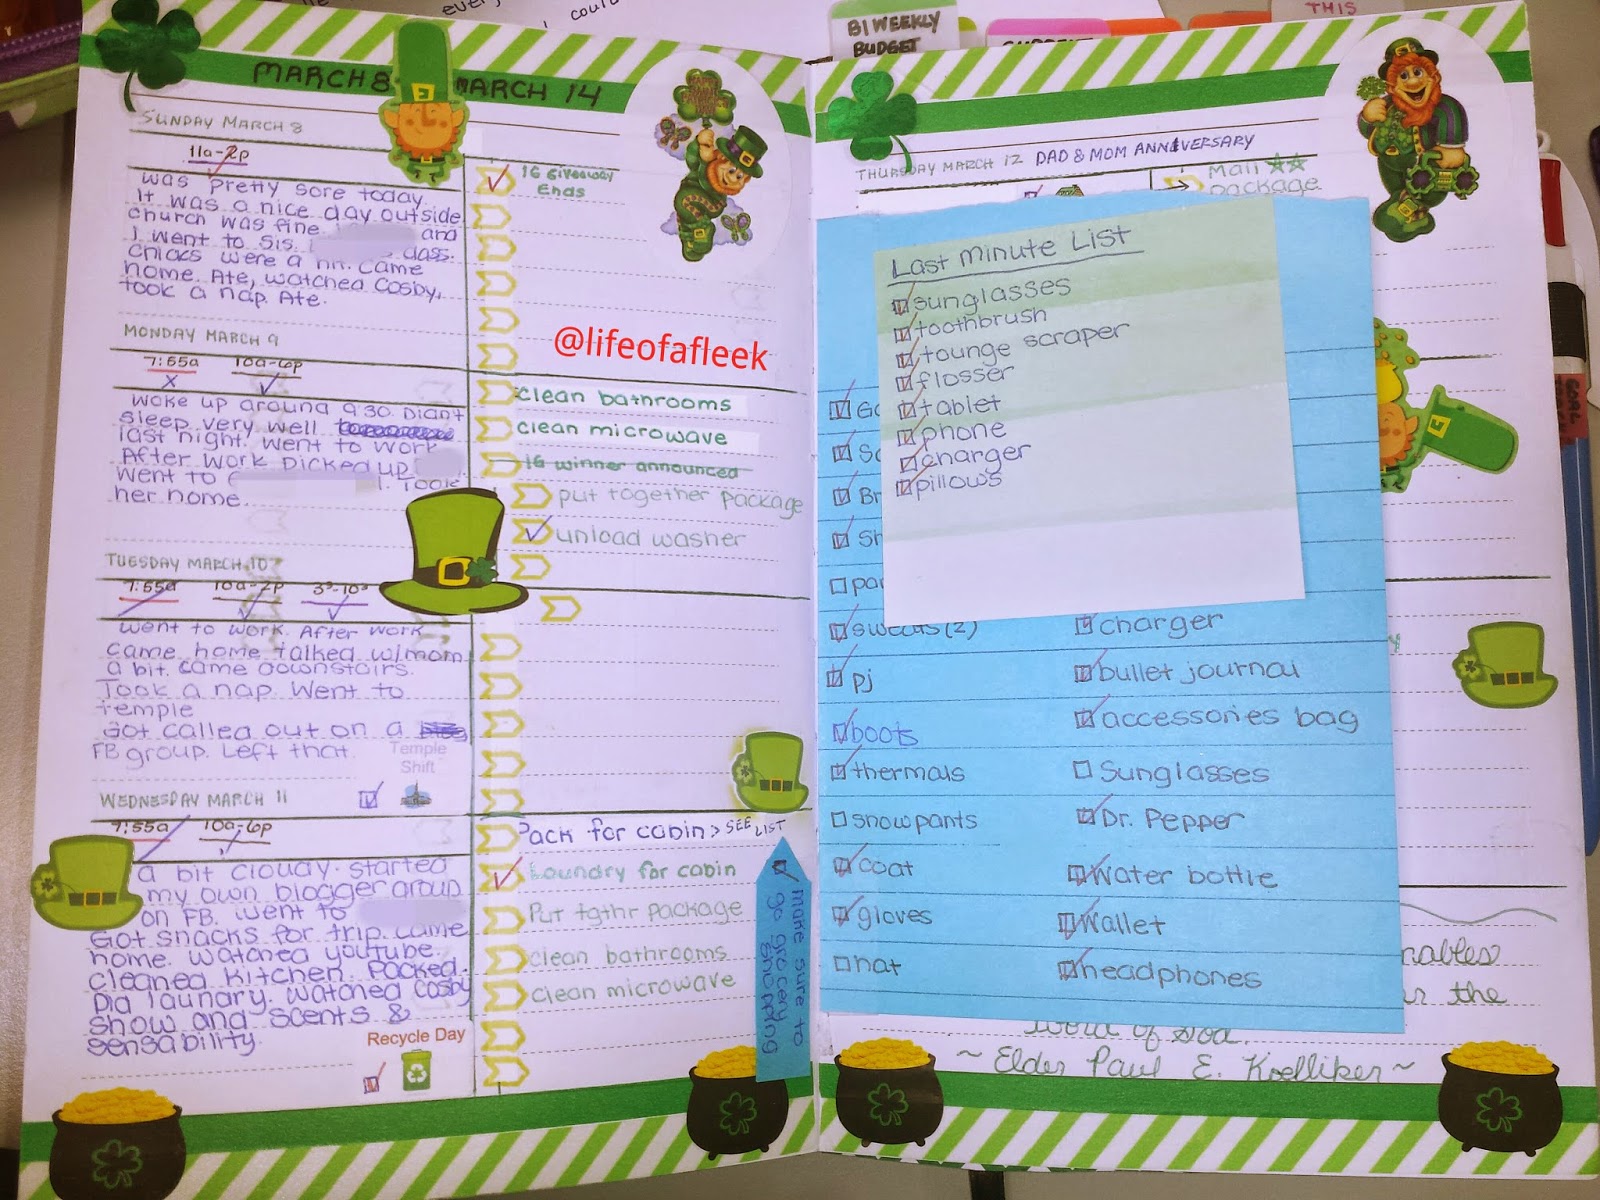 BI WEEKLY
BUDGET
THIS
MARCH 8 MARCH 14
SUNDAY MARCH 8
11a-2p
was pretty sore today
It was a nice day outside
church was fine. and
I went to Sis. class.
chicks were a hit. came
home. Ate, watched Cosby,
took a nap. Ate.
IG Giveaway
Ends
@lifeofafleek
MONDAY MARCH 9
7:55a 10a-6p
x
woke up around 9:30. Didn't
sleep very well
last night. went to work
After work picked up
went to . Took
her home.
clean bathrooms
clean microwave
IG winner announced
put together package
unload washer
TUESDAY MARCH 10
7:55a 10a-2p 3³-10³
went to work. After work
came home talked w/mom
a bit. came downstairs.
Took a nap. Went to
temple
Got called out on a
FB group. Left that.
Temple
Shift
WEDNESDAY MARCH 11
7:55a 10a-6p
a bit cloudy. started
my own blogger group
on FB. went to
Got snacks for trip. came
home. watched youtube.
cleaned kitchen. Packed.
Did laundry. watched Cosby
show and scents &
sensability.
Recycle Day
Pack for cabin > SEE LIST
Laundry for cabin
Put tgthr package
clean bathrooms
clean microwave
make sure to
go grocery
shopping
THURSDAY MARCH 12 DAD & MOM ANNIVERSARY
Mail
package
Last Minute List
sunglasses
toothbrush
tounge scraper
flosser
tablet
phone
charger
pillows
sweats (2)
pj
boots
thermals
snowpants
coat
gloves
hat
charger
bullet journal
accessories bag
Sunglasses
Dr. Pepper
Water bottle
Wallet
headphones
the
word of God.
~ Elder Paul E. Koelliker ~